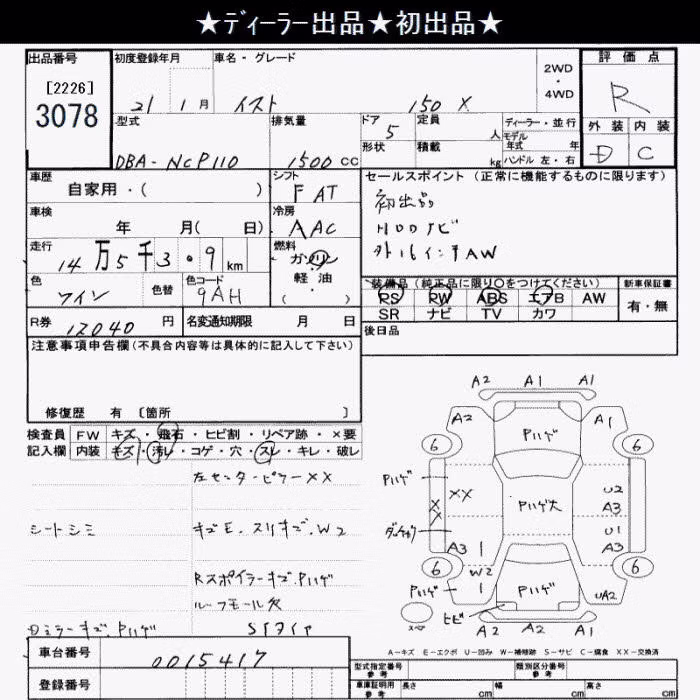 ★ディーラー出品★初出品★
出品番号 初度登録年月 車名・グレード 2WD・4WD 評価点
[2226]
3078
21 1月 イスト 150 X
R
型式 排気量 ドア 定員 人 ディーラー・並行
5
モデル年式 年
形状 積載 kg ハンドル 左・右
DBA-NCP110 1500 cc
外装 内装
D C
車歴 シフト セールスポイント(正常に機能するものに限ります)
自家用・( ) F AT
初出品
車検 冷房
HDDナビ
年 月( 日) AAC
外16インチAW
走行 燃料
14万5千3.9km ガソリン・軽油・( )
色 色替 色コード
ワイン 9AH
装備品(純正品に限り〇をつけてください) 新車保証書
PS PW ABS エアB AW 有・無
SR ナビ TV カワ
R券 12040 円 名変通知期限 月 日
後日品
注意事項申告欄(不具合内容等は具体的に記入して下さい)
修復歴 有 [箇所 ]
検査員 FW キズ・飛石・ヒビ割・リペア跡・×要
記入欄 内装 キズ・汚レ・コゲ・穴・スレ・キレ・破レ
左センターピラーXX
シートシミ キズE.スリキズ.W2
RスポイラーキズPハゲ
ルーフモール欠
DミラーキズPハゲ Sタイヤ
A2 A1 A1
A2 Pハゲ A1
6 6
Pハゲ
XX XX Pハゲ大 U2
A3
U1
A3 A3
6 W2 6
Pハゲ Pハゲ UA2
ヒビ
A2 A2 A1
A-キズ E-エクボ U-凹み W-補修跡 S-サビ C-腐食 XX-交換済
車台番号 0015417
登録番号
型式指定番号 参考 類別区分番号 参考
車庫証明用 参考 長さ cm 幅 cm 高さ cm